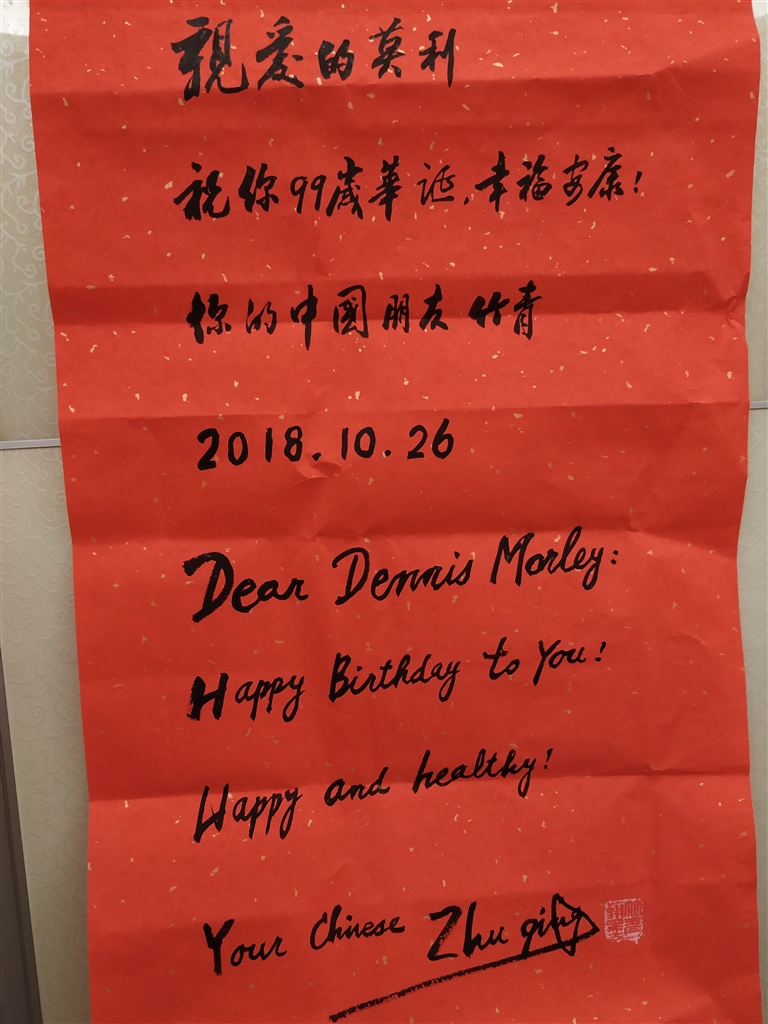 親爱的莫利
祝你99歲華诞,幸福安康!
你的中國朋友 竹青
2018.10.26
Dear Dennis Morley:
Happy Birthday to You!
Happy and healthy!
Your Chinese Zhu qing